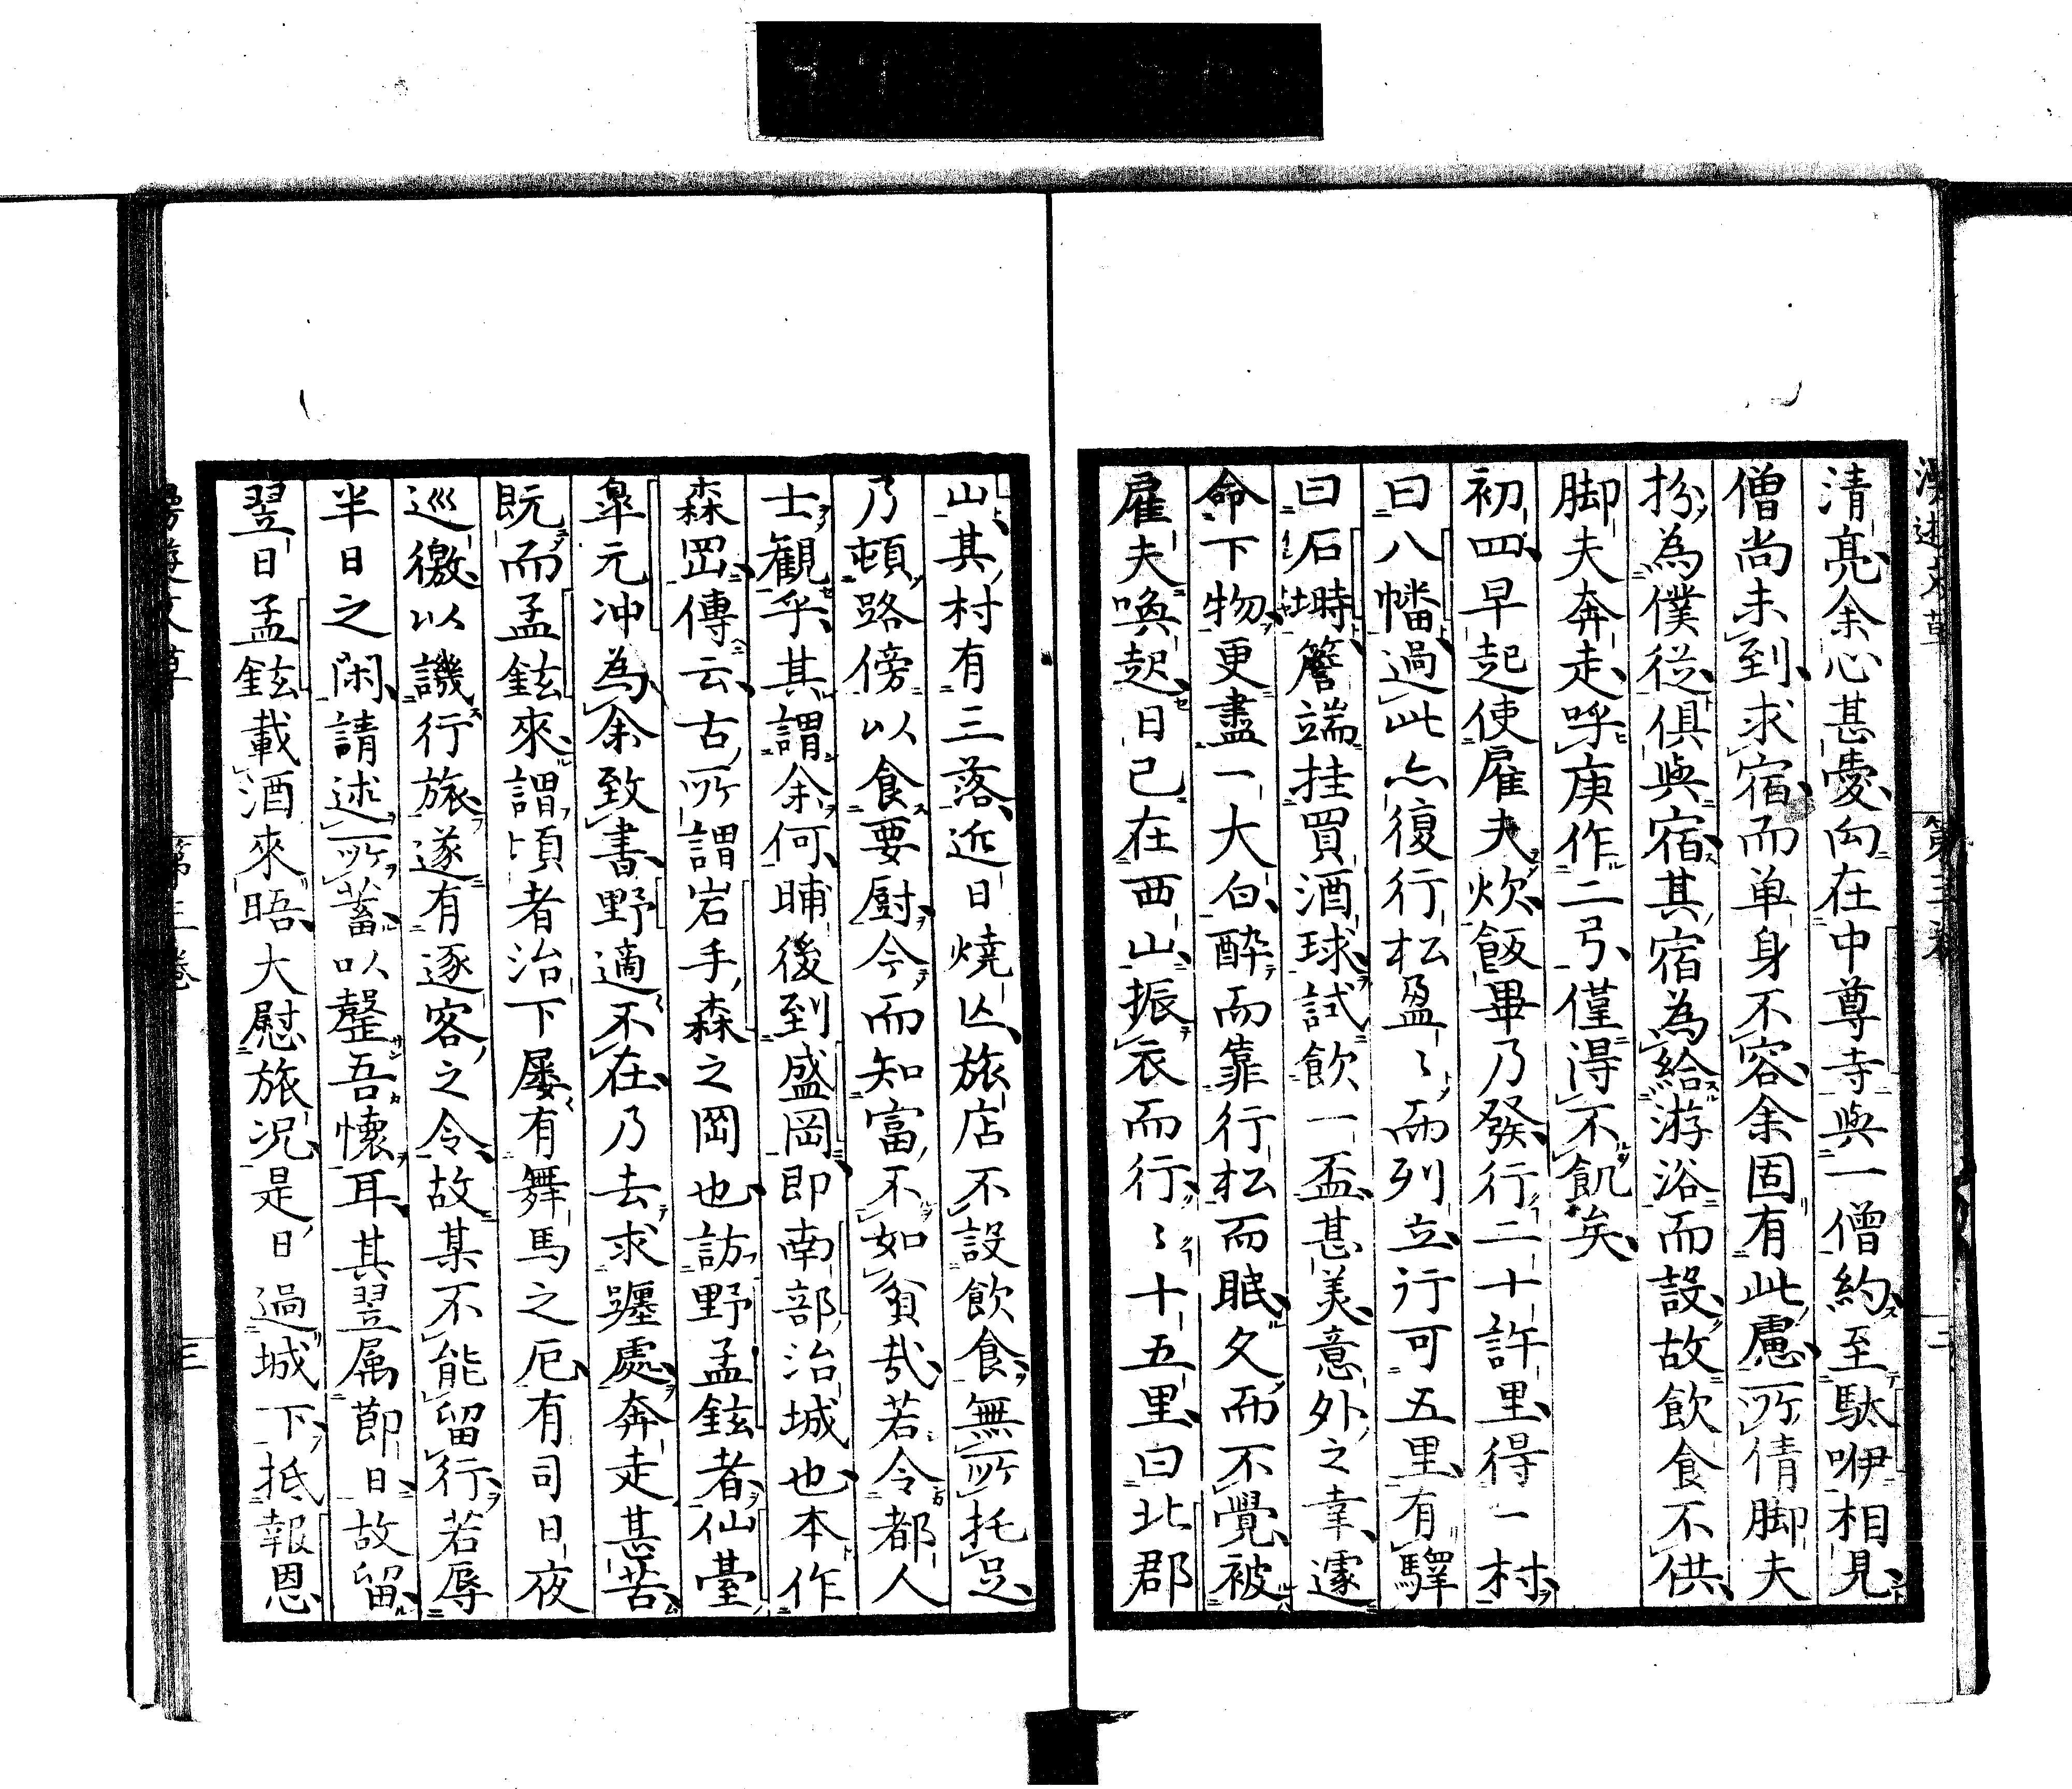 清亮余心甚憂向在中尊寺與一僧約至駄咿相見
僧尚未到求宿而单身不容余固有此慮所倩脚夫
扮為僕從俱與宿其宿為給游浴而設故飲食不供
脚夫奔走呼庚作二弓僅得不飢矣
初四早起使雇夫炊飯畢乃發行二十許里得一村
曰八幡過此亦復行松盈〻而列立行可五里有驛
曰石塒簷端挂買酒球試飲一盃甚美意外之幸遽
命下物更盡一大白酔而靠行松而眠久而不覺被
雇夫喚起日已在西山振衣而行〻十五里曰北郡
山其村有三落近日燒亾旅店不設飲食無所托足
乃頓路傍以食要厨今而知富不如貧哉若令都人
士觀乎其謂余何晡後到盛岡即南部治城也本作
森岡傳云古所謂岩手森之岡也訪野孟鉉者仙臺
皐元冲為余致書野適不在乃去求躔處奔走甚苦
既而孟鉉來謂頃者治下屡有舞馬之厄有司日夜
巡徼以譏行旅遂有逐客之令故某不能留行若辱
半日之閑請述所蓄以罄吾懷耳其翌属節日故留
翌日孟鉉載酒來晤大慰旅况是日過城下抵報恩
第三卷
三